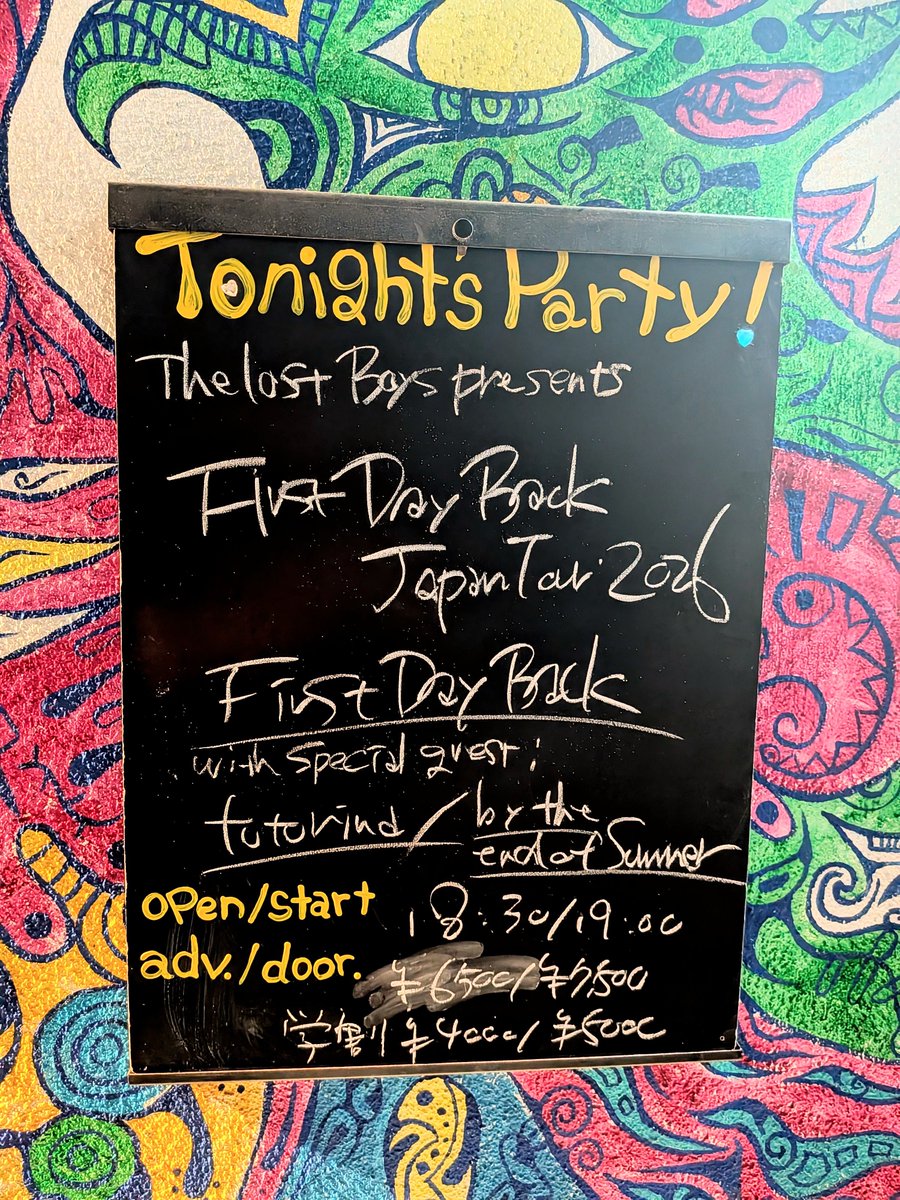 Tonight's Party!
The lost Boys presents
First Day Back
Japan Tour 2026
First Day Back
with special guest:
tutorind / by the
end of Summer
open/start 18:30/19:00
adv./door. ¥6500/¥7,500
学割 ¥4000/¥5000